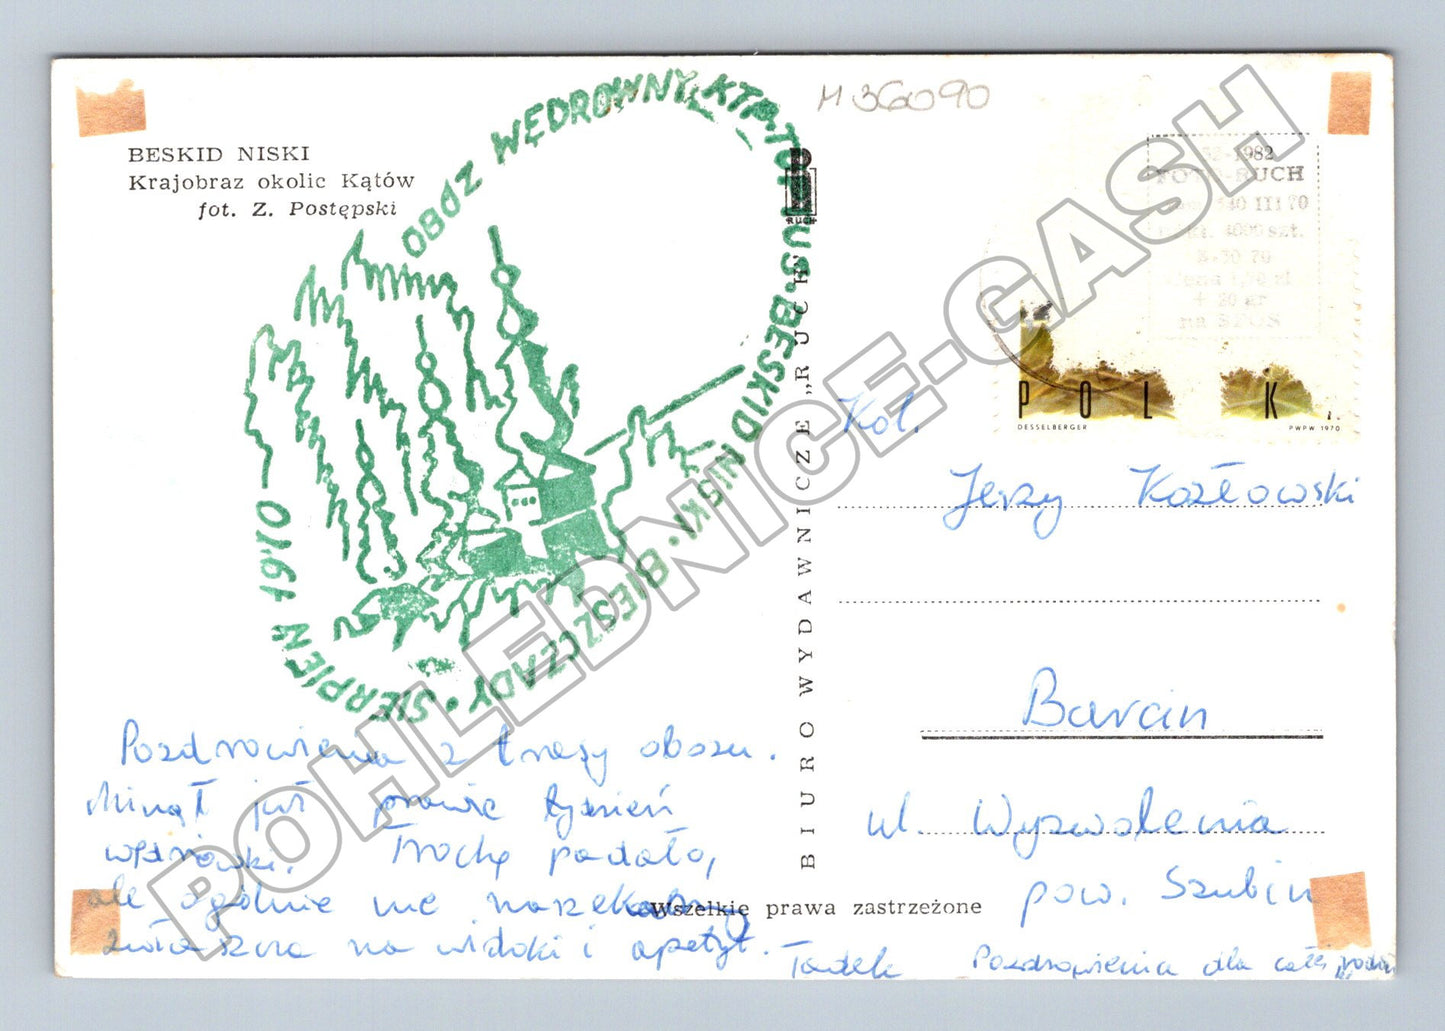 BESKID NISKI
Krajobraz okolic Kątów
fot. Z. Postępski
OBÓZ WĘDROWNY KTP-TORUŃ
BESKID NISKI · BIESZCZADY · SIERPIEŃ 1970
M 36090
RUCH
BIURO WYDAWNICZE „RUCH"
1982
FOTO-RUCH
540 III 70
4000 szt.
8-30 70
cena 1,70 zł
+ 20 gr
na SFOS
POLSK
DESSELBERGER
PWPW. 1970
Kol.
Jerzy Kozłowski
Barcin
ul. Wyzwolenia
pow. Szubin
Pozdrowienia z trasy obozu.
Minął już prawie tydzień
wędrówki. Trochę padało,
ale ogólnie nie narzekamy
zwłaszcza na widoki i apetyt.
Tadek
Pozdrowienia dla całej rodziny
Wszelkie prawa zastrzeżone
POHLEDNICE-GASH